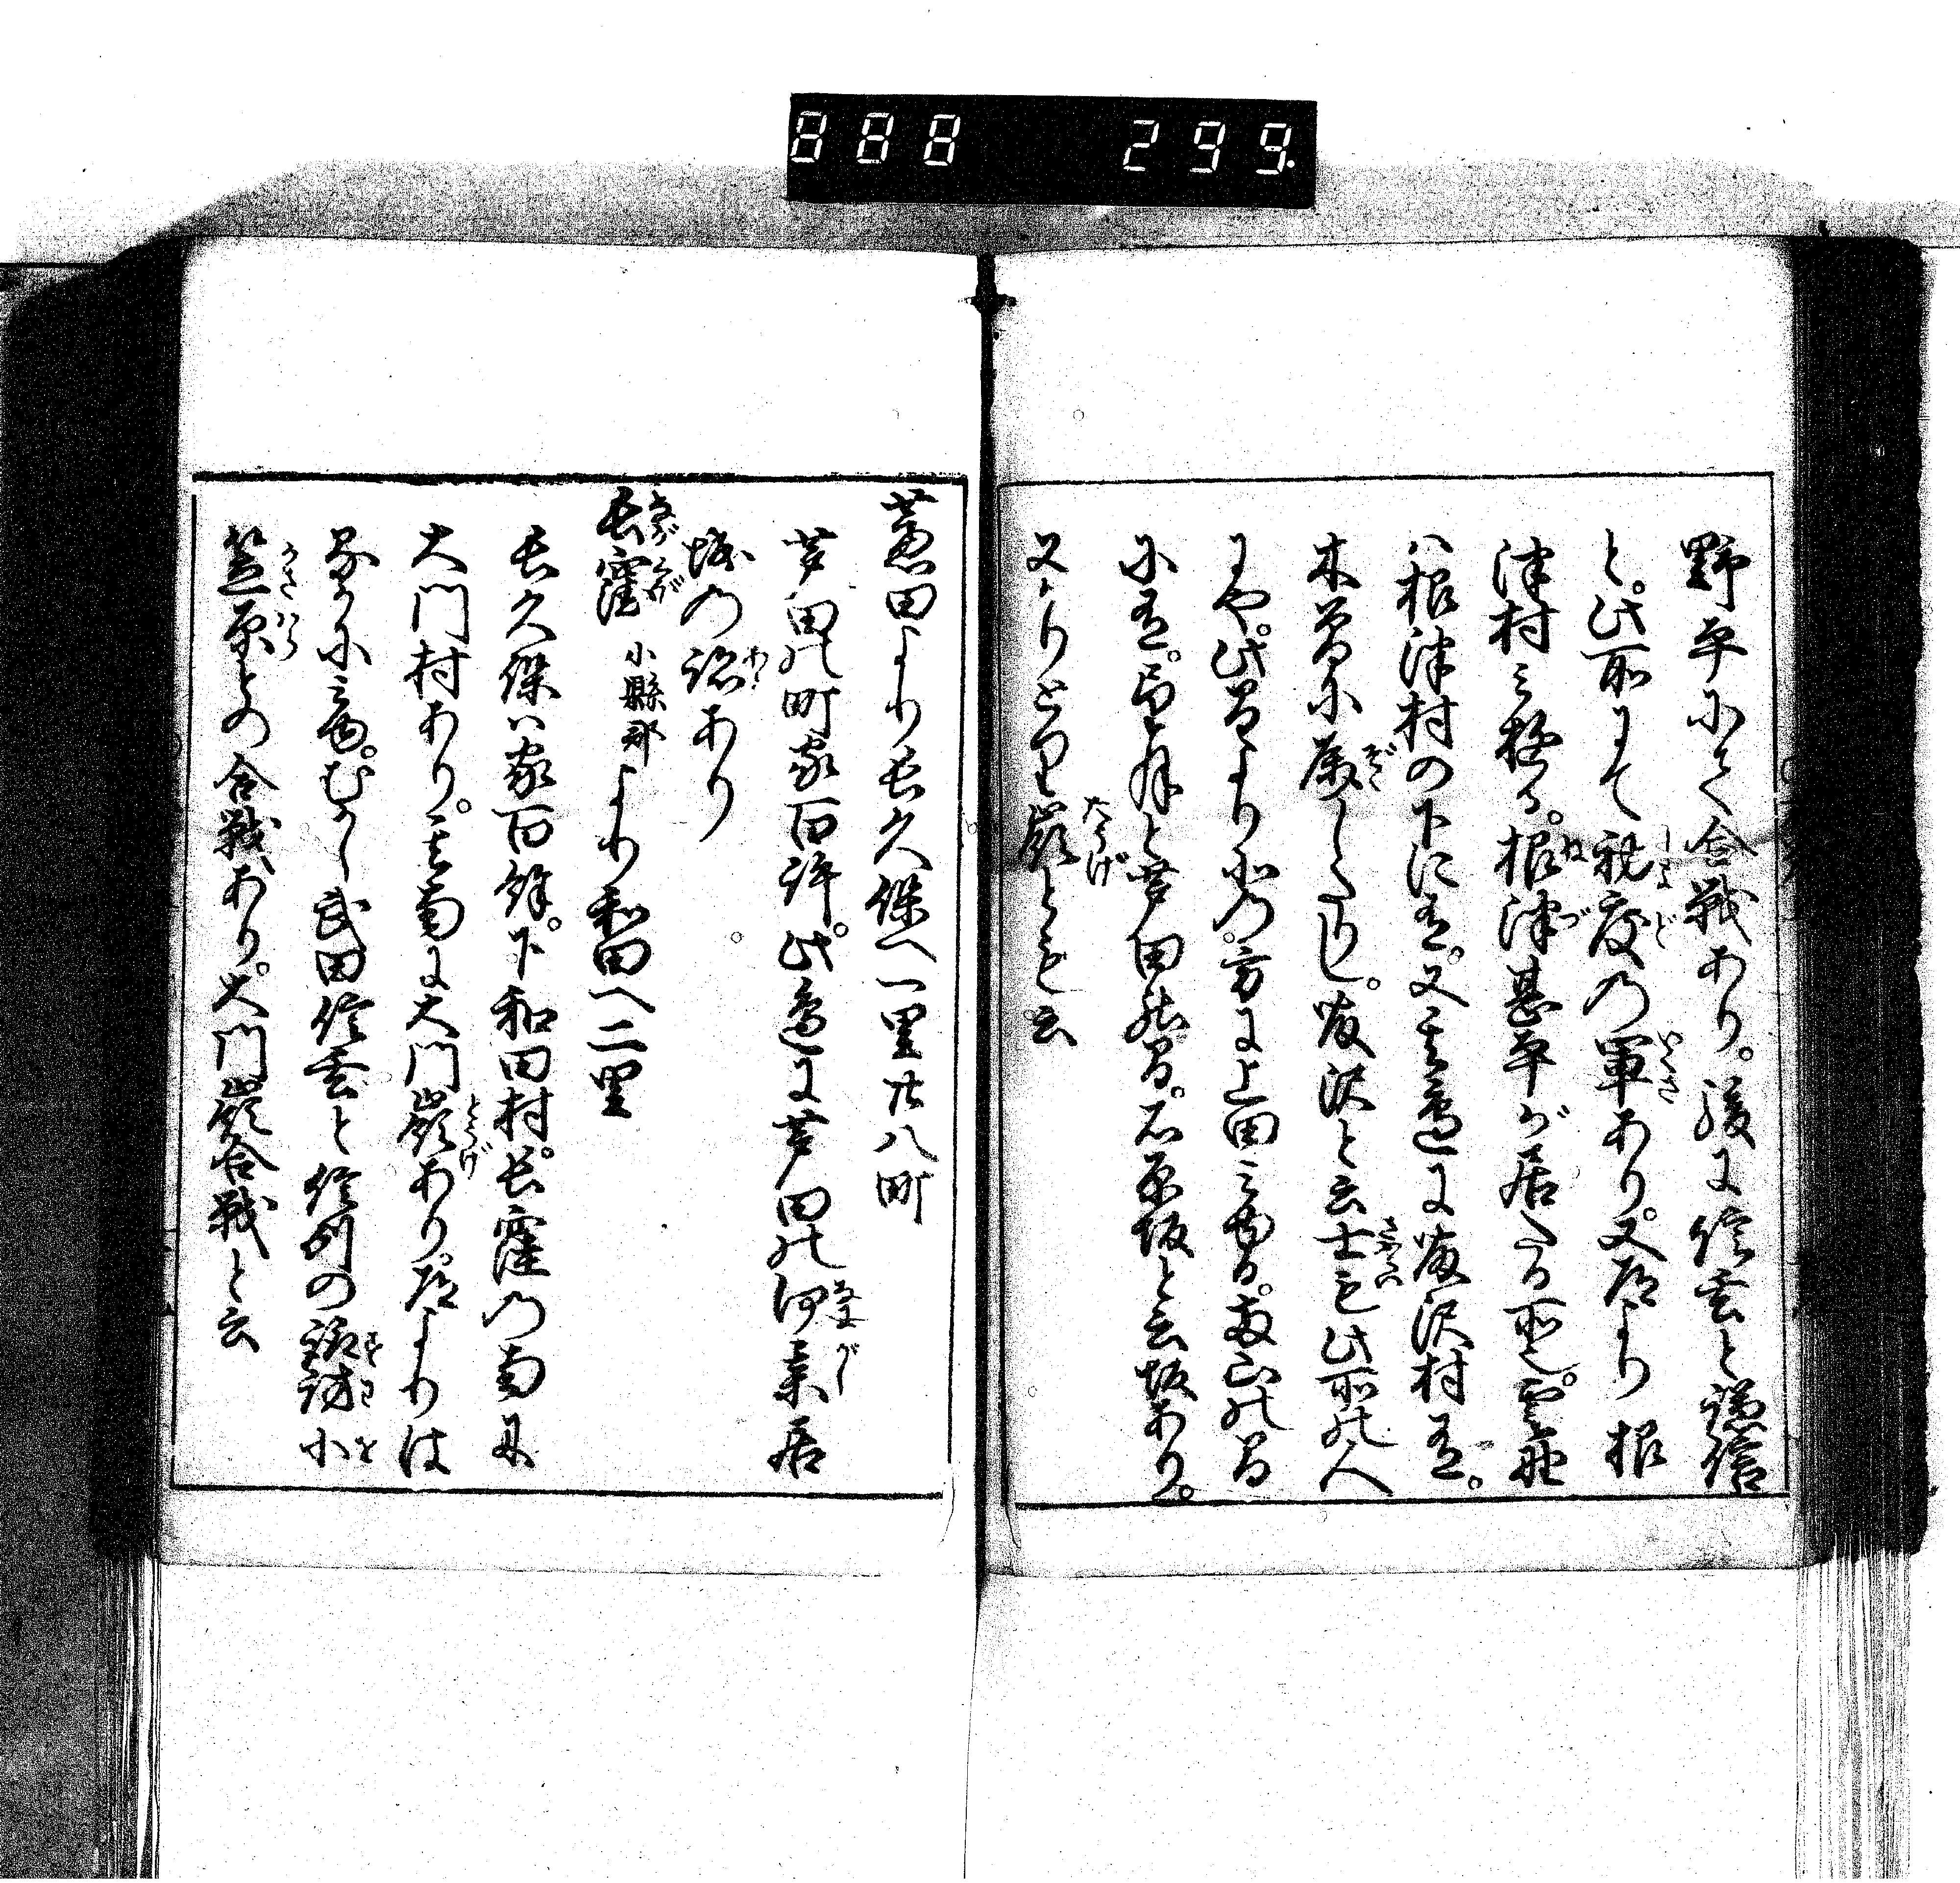 888 299
野平にて合戦あり。後に信玄と謙信
と。此所にて初度の軍あり。又爰より根
津村に移る。根津甚平が居たる所也。望月
は根津村の下に有。又其邊に海沢村有。
木曽に属したりし。海沢と云士も此所の人
にや。此間より北の方に上田みゆる。両山の間
に有。望月と芦田の間。石原坂と云坂あり。
又かりとり嶺とも云
蘆田より長久保へ一里廿八町
芦田の町家百許。此邊に芦田の何某居
城の跡あり
長窪 小縣郡 より和田へ二里
長久保は家百餘。下和田村。長窪の南に
大門村あり。其南に大門嶺あり。爰よりは
るかにみゆ。むかし武田信玄と信州の諏訪小
笠原との合戦あり。大門嶺合戦と云